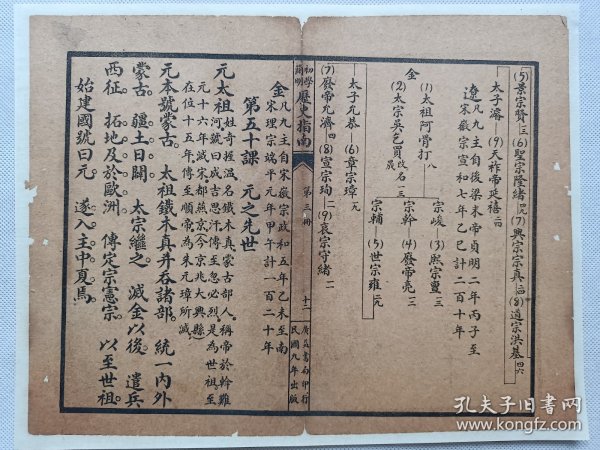 (5)景宗賢 (6)聖宗隆緒 (7)興宗宗真 (8)道宗洪基 四六
太子濬—(9)天祚帝延禧 二四
遼 凡九主自後梁末帝貞明二年丙子至
宋徽宗宣和七年乙巳計二百十年
金
(1)太祖阿骨打 八
宗峻—(3)熙宗亶
宗幹—(4)廢帝亮
(2)太宗吳乞買 改名晟
宗輔—(5)世宗雍
太子允恭—(6)章宗璟
(7)廢帝允濟 四 (8)宣宗珣 (9)哀宗守緒
初學簡明歷史指南 第三冊 十二 廣益書局印行 民國九年出版
金 凡九主自宋徽宗政和五年乙未至南
宋理宗端平元年甲午計一百二十年
第五十課 元之先世
元太祖 姓奇握溫名鐵木真蒙古部人稱帝於斡難
河號曰成吉思汗傳至忽必烈是為世祖至
元十六年滅宋都燕京今京兆大興縣
在位十五年傳至順帝為朱元璋所滅
元本號蒙古。太祖鐵木真并吞諸部。統一內外
蒙古。疆土日闢。太宗繼之。滅金以後。遣兵
西征。拓地及於歐洲。傳定宗憲宗。以至世祖。
始建國號曰元。遂入主中夏焉。
孔夫子旧书网
www.kongfz.com